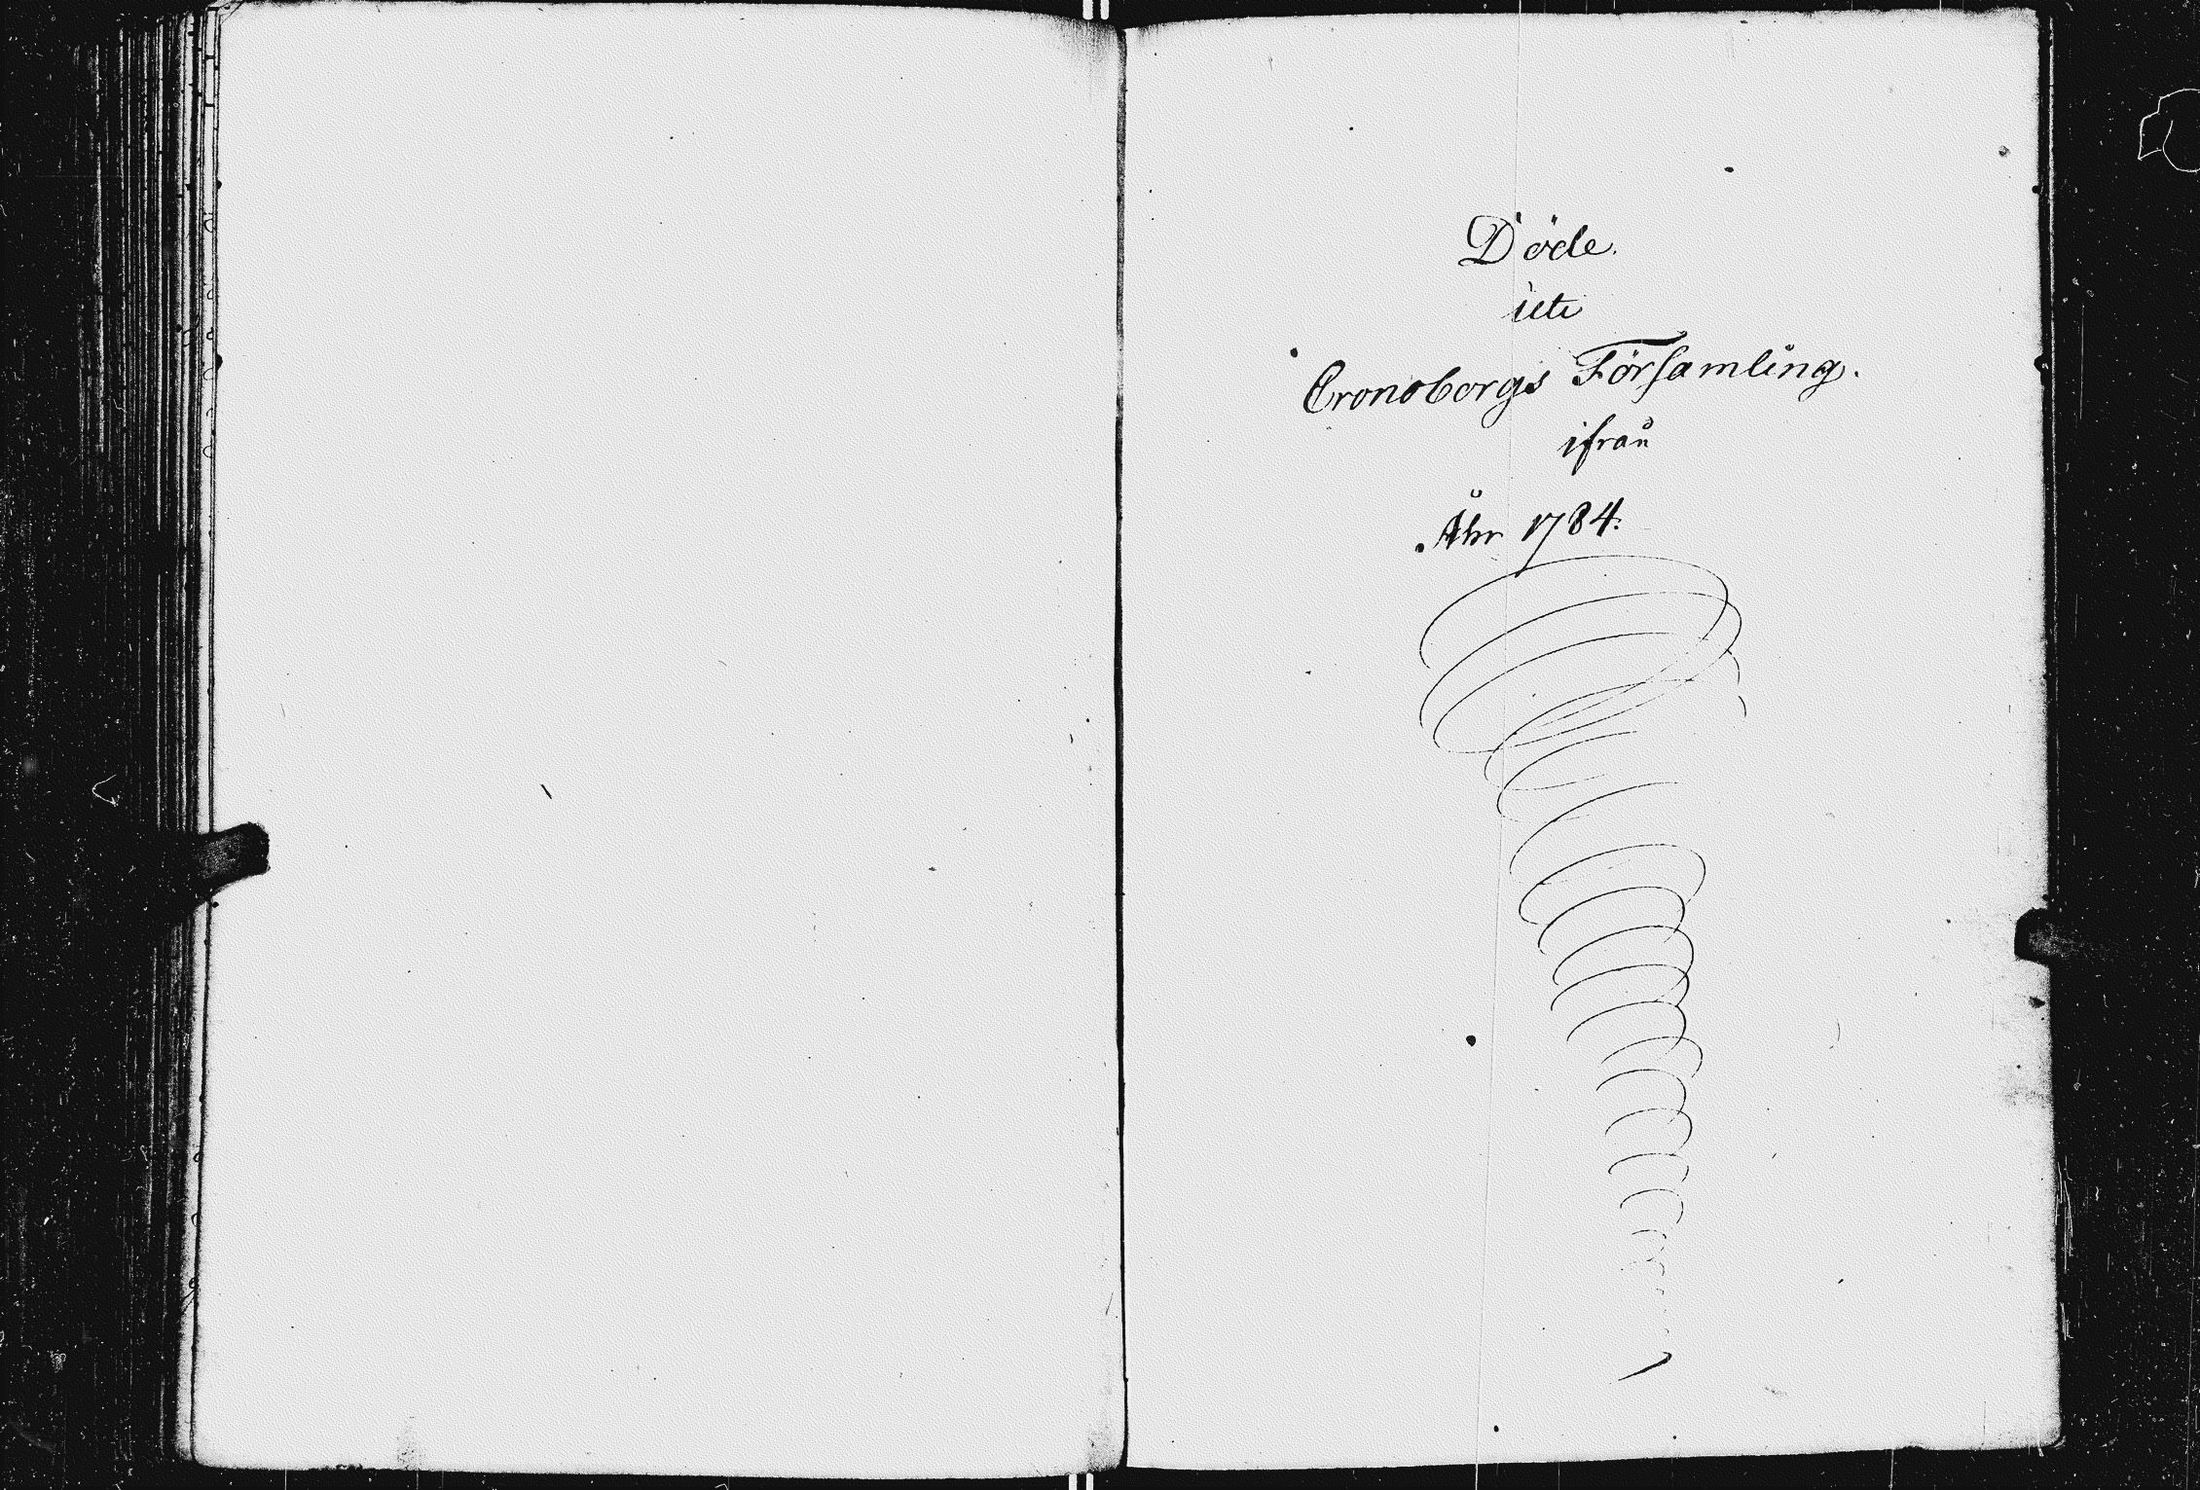 Döde.
uti
Cronoborgs Församling.
ifrån
Åhr 1784.